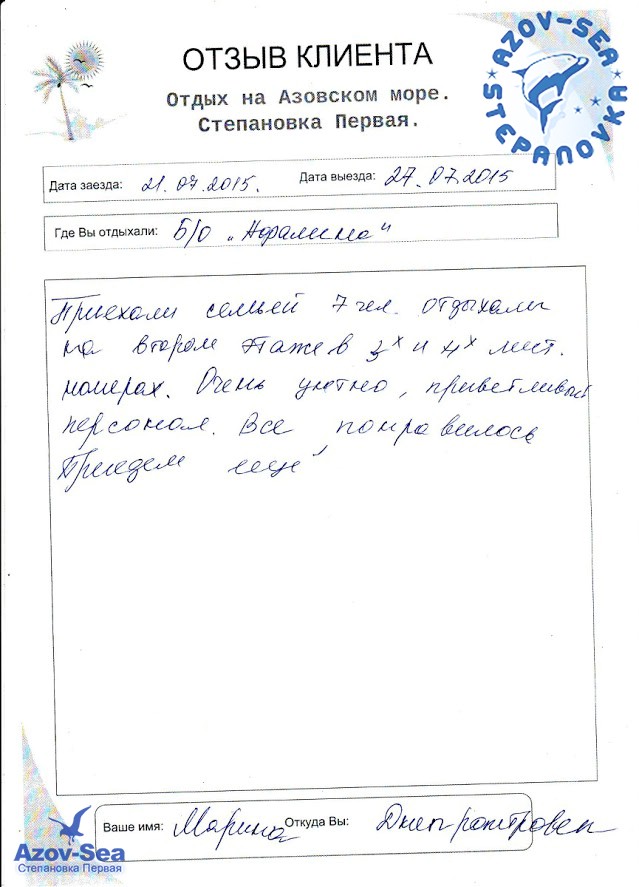 ОТЗЫВ КЛИЕНТА
AZOV-SEA STEPANOVKA
Отдых на Азовском море.
Степановка Первая.
Дата заезда: 21.07.2015. Дата выезда: 27.07.2015
Где Вы отдыхали: Б/О „Адралина"
Приехали семьей 7 чел. отдыхали
на втором этаже в 3х и 4х мест.
номерах. Очень уютно, приветливый
персонал. Все понравилось
Приедем еще
Ваше имя: Марина Откуда Вы: Днепропетровск
Azov-Sea
Степановка Первая